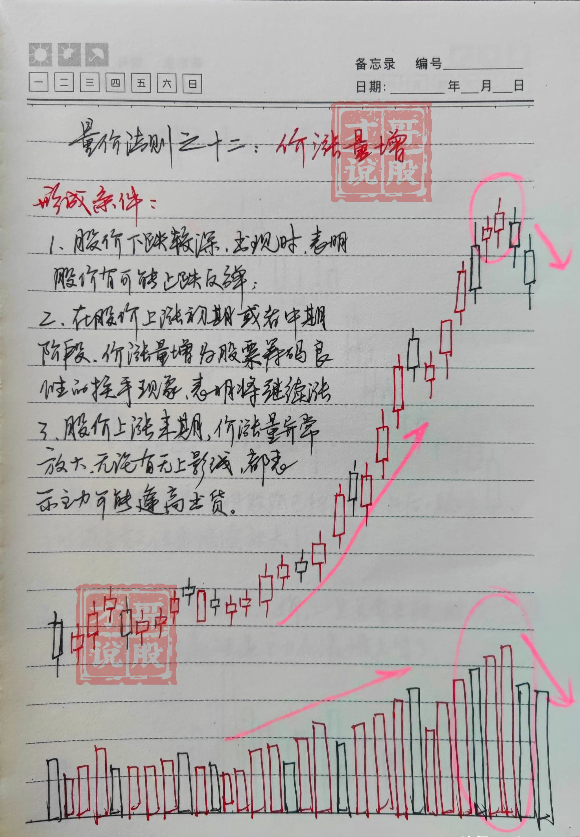 备忘录 编号
一 二 三 四 五 六 日
日期: 年 月 日
量价法则之十二：价涨量增
形成条件：
1、股价下跌较深，出现时，表明
股价有可能止跌反弹；
2、在股价上涨初期或者中期
阶段、价涨量增为股票筹码良
性的换手现象，表明将继续涨
3、股价上涨末期，价涨量异常
放大，无论有无上影线，都表
示主力可能逢高出货。
说股
说股